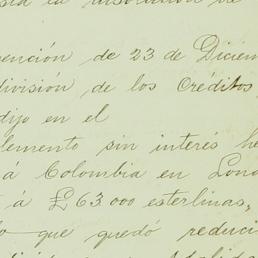 la disolución de
vención de 23 de Diciem
división de los Créditos,
dijo en el
lemento sin interés he
á Colombia en Lond
á £63000 esterlinas,
que quedó reduci